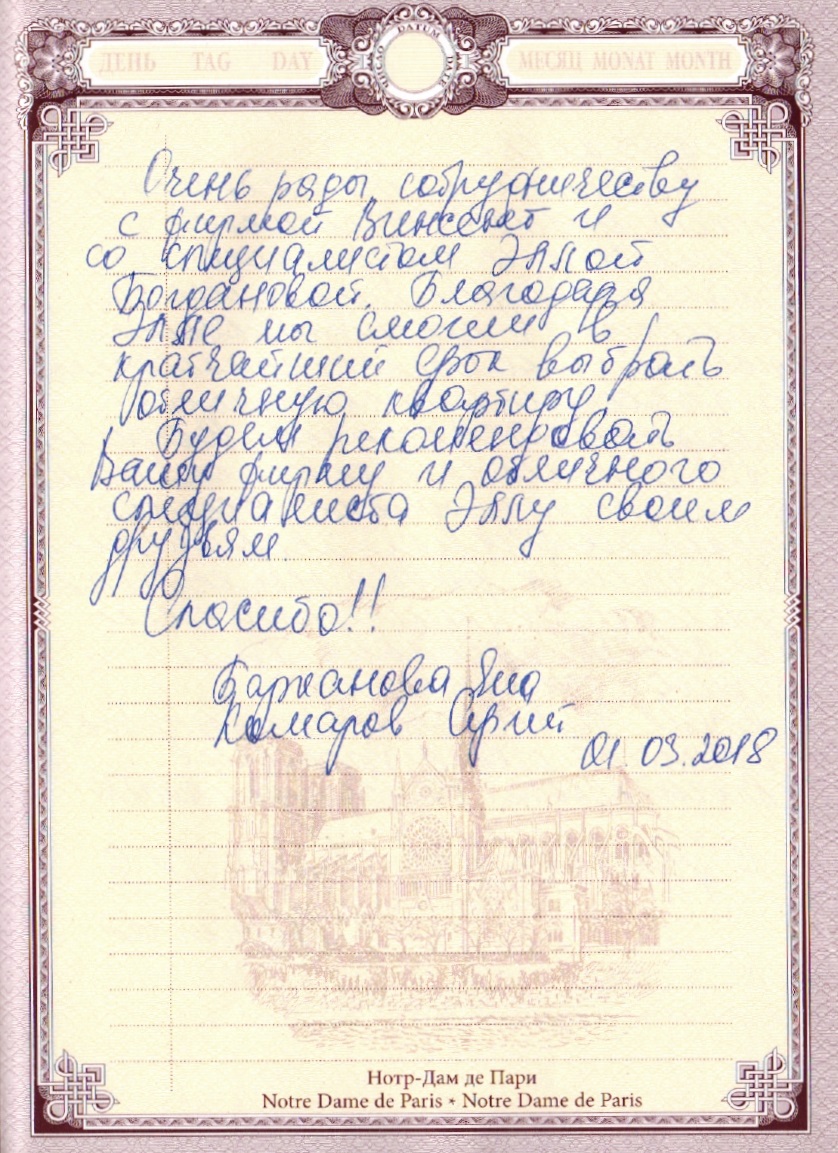 ДЕНЬ TAG DAY
DATUM
МЕСЯЦ MONAT MONTH
Очень рады сотрудничеству
с фирмой Винсент и
со специалистом Эллой
Богдановой. Благодаря
Элле мы смогли в
кратчайший срок выбрать
отличную квартиру.
Будем рекомендовать
Вашу фирму и отличного
специалиста Эллу своим
друзьям.
Спасибо!!
Барханова Яна
Комаров Сергей
01.03.2018
Нотр-Дам де Пари
Notre Dame de Paris * Notre Dame de Paris